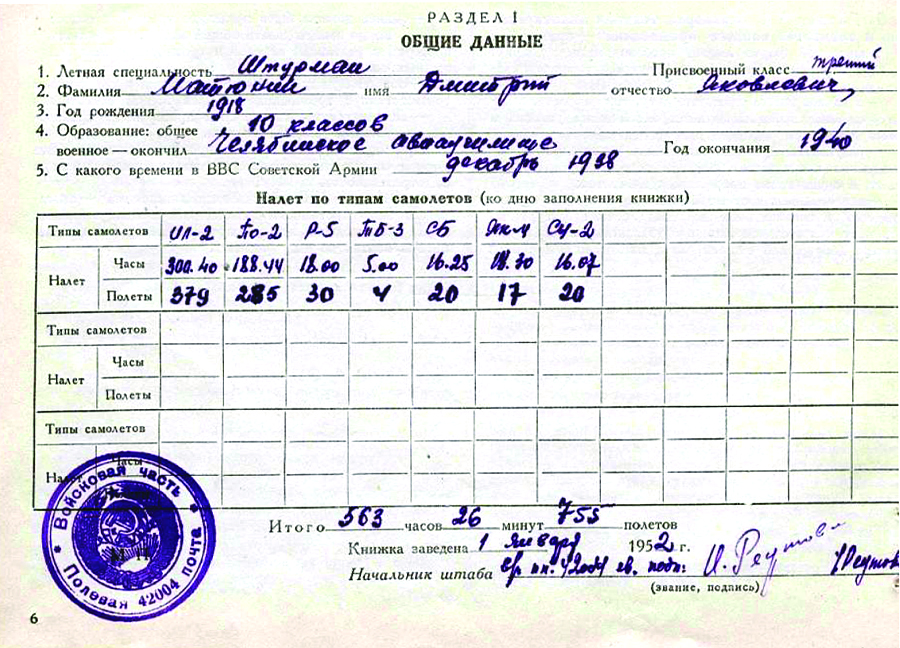 РАЗДЕЛ I
ОБЩИЕ ДАННЫЕ
1. Летная специальность Штурман Присвоенный класс третий
2. Фамилия Матюнин имя Дмитрий отчество Яковлевич,
3. Год рождения 1918
4. Образование: общее 10 классов
военное — окончил Челябинское авиаучилище Год окончания 1940
5. С какого времени в ВВС Советской Армии декабрь 1938
Налет по типам самолетов (ко дню заполнения книжки)
Типы самолетов Ил-2 По-2 Р-5 ТБ-3 СБ Су-2
Налет Часы 300.40 188.44 18.00 5.00 16.25 18.30 16.07
Полеты 379 285 30 4 20 17 20
Типы самолетов
Налет Часы
Полеты
Типы самолетов
Налет Часы
Войсковая часть
Полевая почта 42004
Итого 563 часов 26 минут 755 полетов
Книжка заведена 1 января 1952 г.
Начальник штаба И. Реутов
(звание, подпись)
6